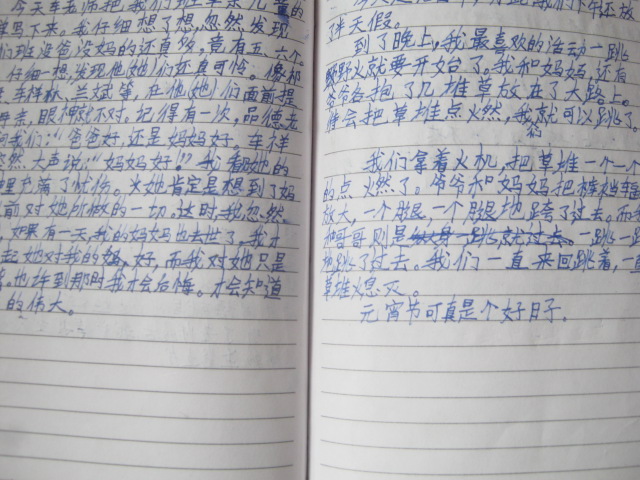 今天车老师把我们班
写下来。我仔细想了想,忽然发现
们班没爸没妈的还真多,竟有五、六个。
仔细一想,发现他(她)们还真可怜。像
车梓秋、兰斌等,在他(她)们面前提
眼神就不对。记得有一次,品德老
问我们:“爸爸好,还是妈妈好。车祥
突然大声说:“妈妈好!”我看到她的
里充满了忧伤。她肯定是想到了妈
前对她所做的一切。这时,我忽然
如果有一天,我的妈妈也去世了。我才
起她对我的好。而我对她只是
也许到那时我才会后悔。才会知道
的伟大。
们下午还放
了半天假。
到了晚上,我最喜欢的活动一跳
野火就要开始了。我和妈妈,还有
爷爷各抱了几堆草放在了大路上。
会把草堆点火燃,我就可以跳了
我们拿着火机,把草堆一个一个
的点火燃了。爷爷和妈妈把
放大,一个腿一个腿地跨了过去。而
和哥哥则是一跳一跳
地跳了过去。我们一直来回跳着,一直
草堆火熄灭。
元宵节可真是个好日子。